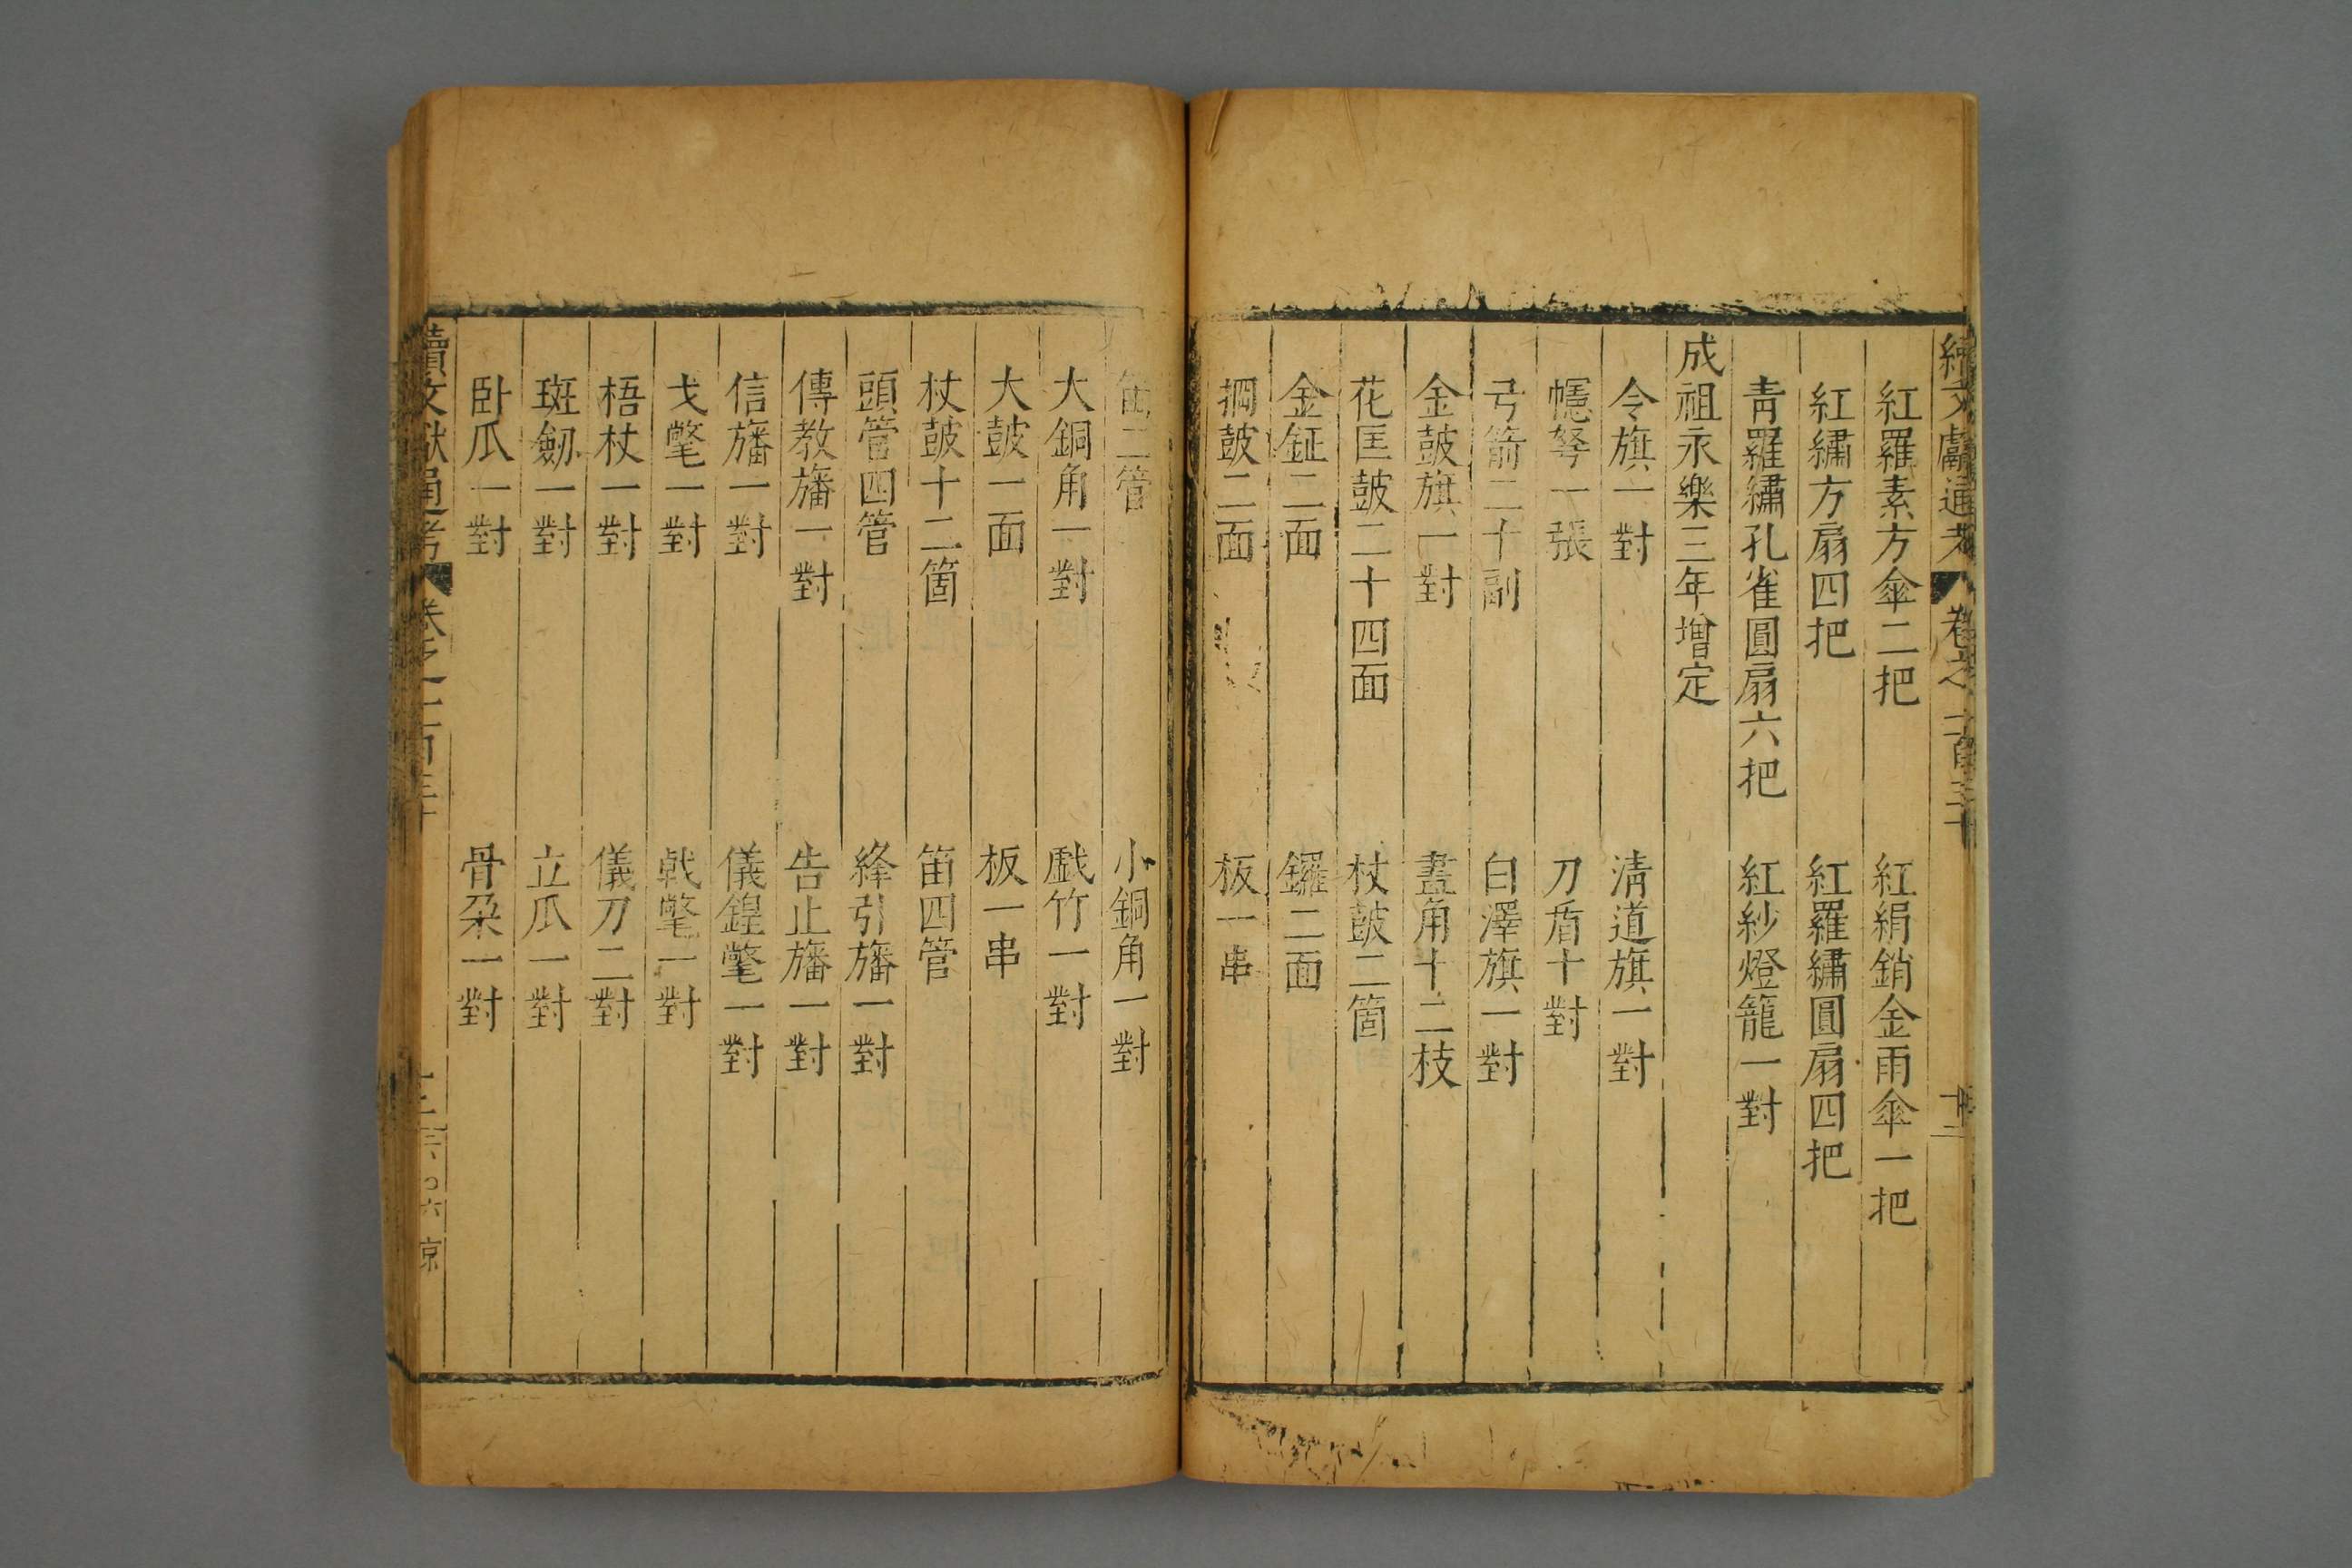 續文獻通考 卷之一百三十 十二
紅羅素方傘二把 紅絹銷金雨傘一把
紅繡方扇四把 紅羅繡圓扇四把
青羅繡孔雀圓扇六把 紅紗燈籠一對
成祖永樂三年增定
令旗一對 清道旗一對
幰弩一張 刀盾十對
弓箭二十副 白澤旗一對
金鼓旗一對 畫角十二枝
花匡鼓二十四面 杖鼓二箇
金鉦二面 鑼二面
掆鼓二面 板一串
笛二管 小銅角一對
大銅角一對 戲竹一對
大鼓一面 板一串
杖鼓十二箇 笛四管
頭管四管 絳引旛一對
傳教旛一對 告止旛一對
信旛一對 儀鍠氅一對
戈氅一對 戟氅一對
梧杖一對 儀刀二對
斑劒一對 立瓜一對
臥瓜一對 骨朶一對
續文獻通考 卷之一百三十